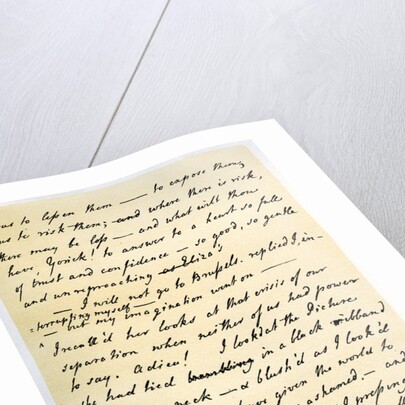 us to lessen them — to expose them
us to risk them; and where there is risk,
there may be loss — and what wilt thou
have, Yorick! to answer to a heart so full
of trust and confidence — so good, so gentle
and unreproaching as Eliza's
— I will not go to Brussels, replied I, in-
-terrupting myself
^ — but my imagination went on —
I recall'd her looks at that crisis of our
separation when neither of us had power
to say. Adieu! I look'd at the Picture
she had tied in a black ribband
neck — & blush'd as I look'd
have given the world to
ashamed. — and
pressing